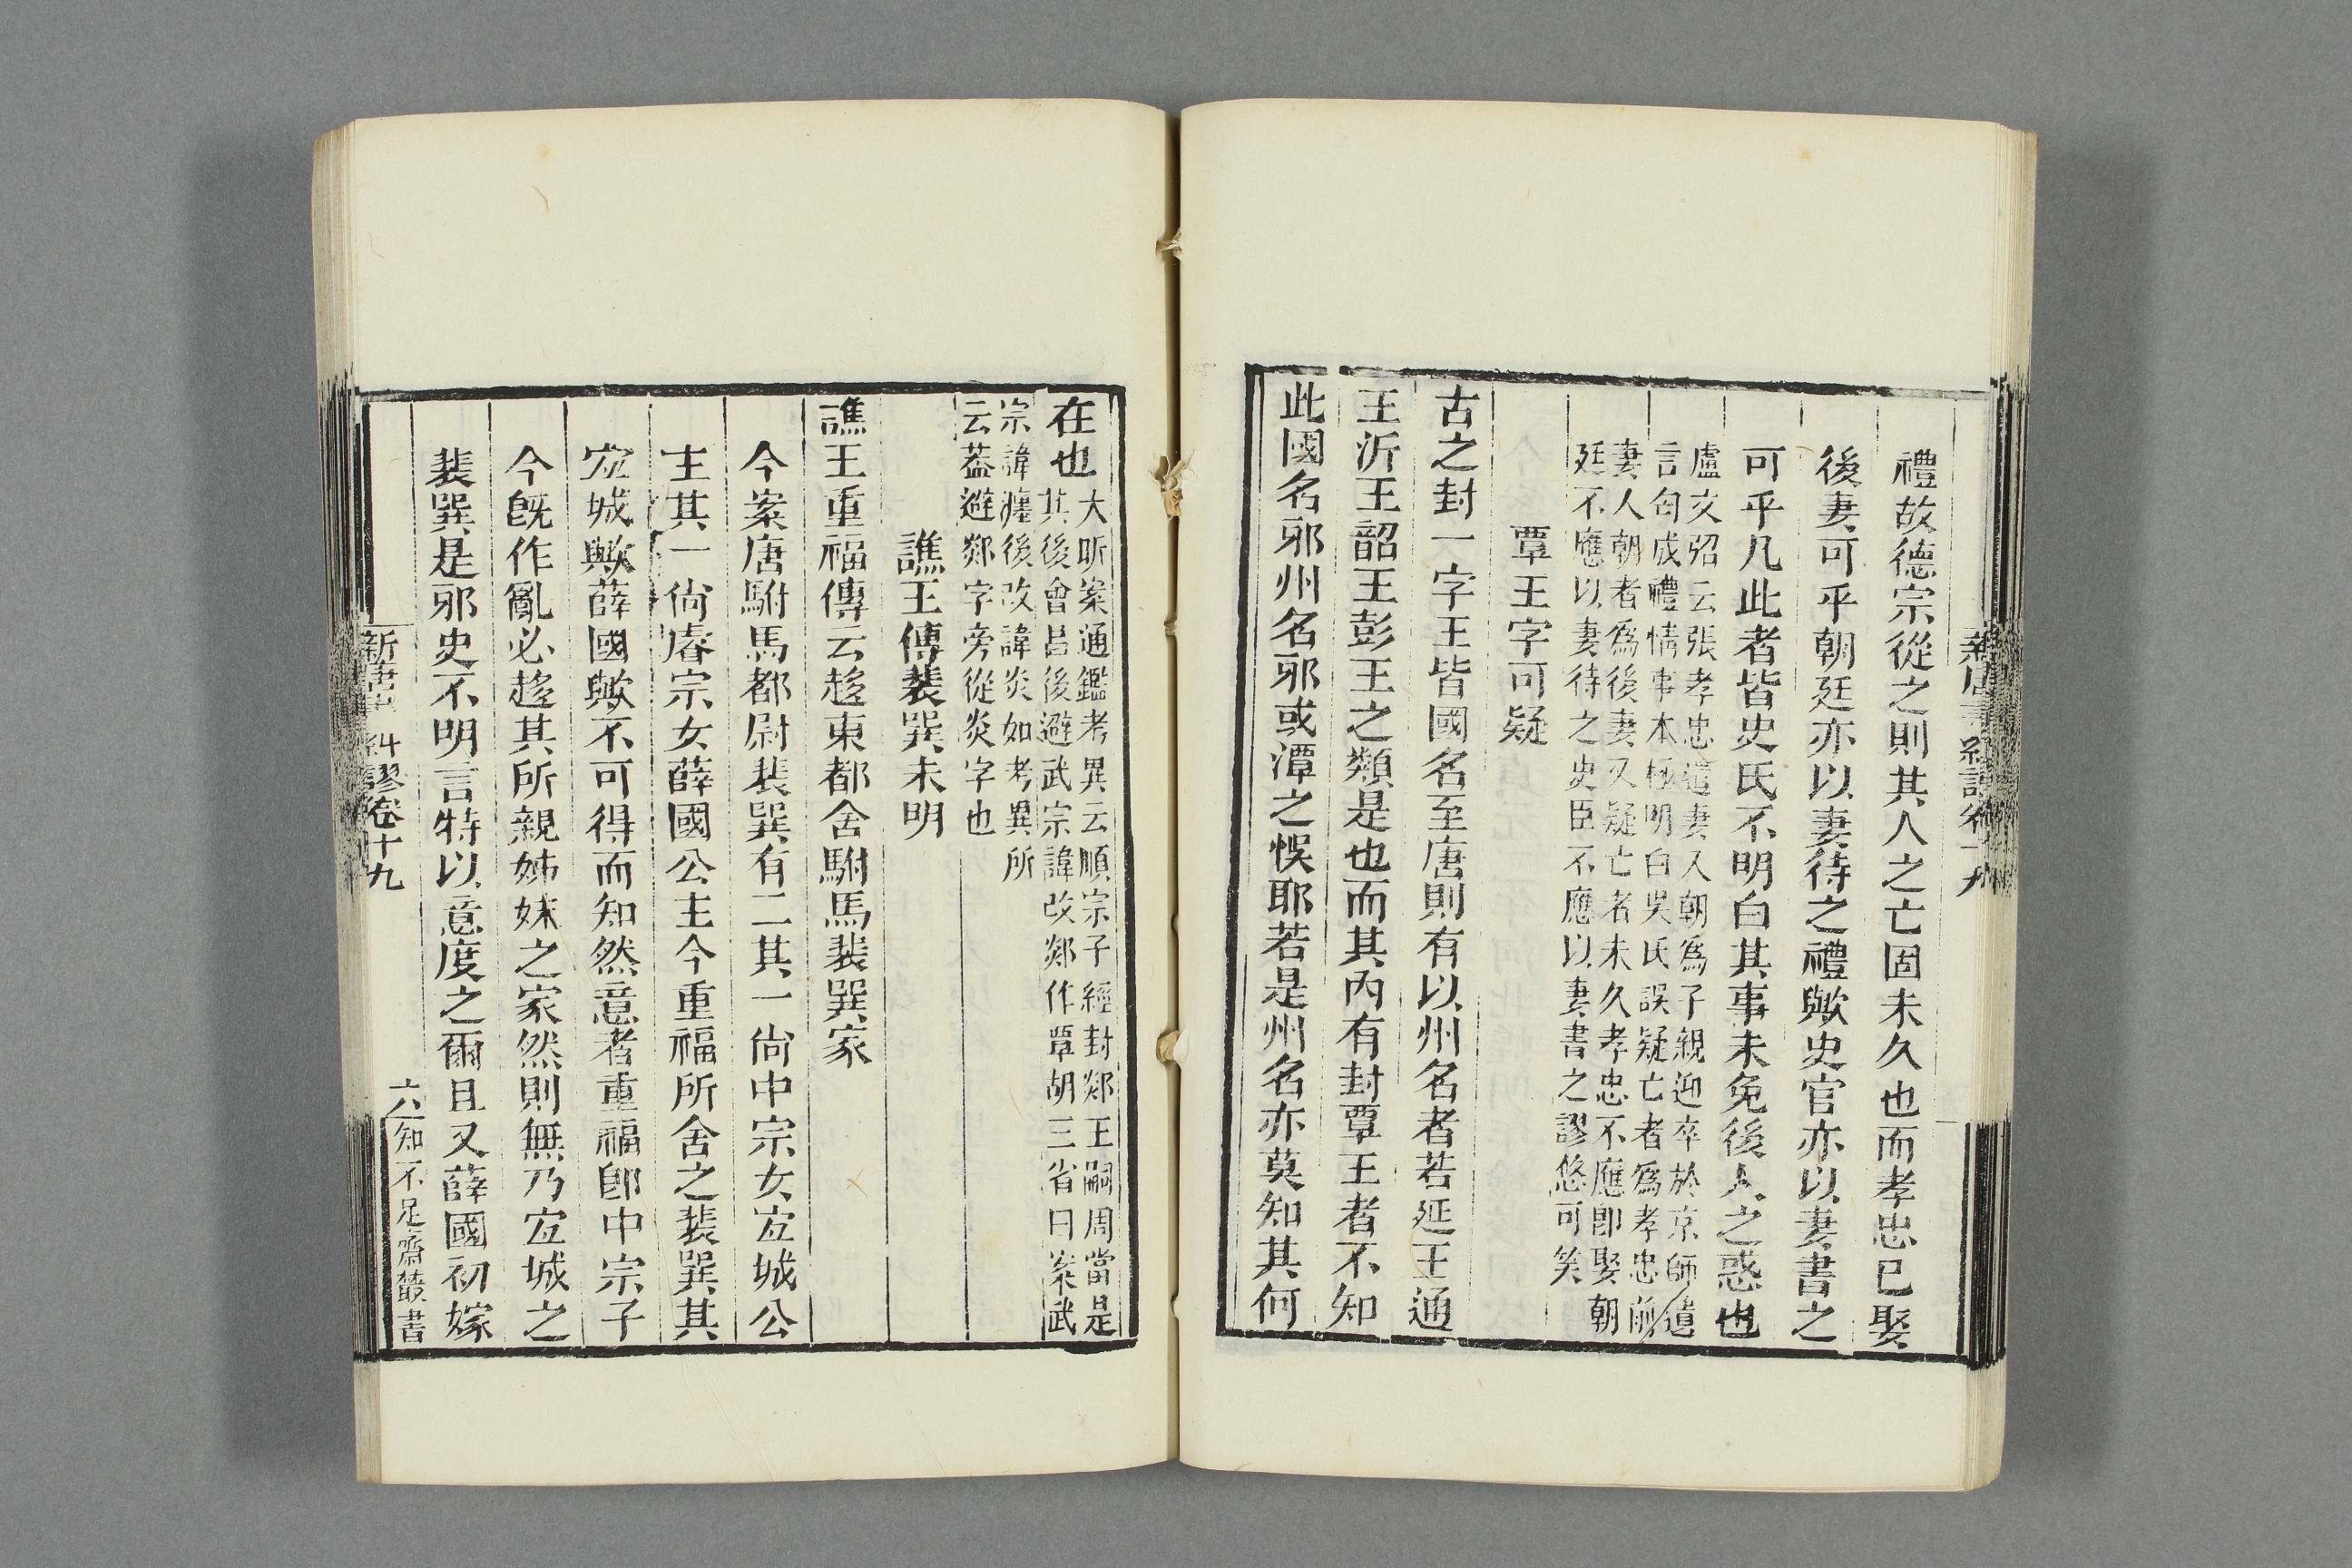 禮故德宗從之則其人之亡固未久也而孝忠已娶
後妻可乎朝廷亦以妻待之禮歟史官亦以妻書之
可乎凡此者皆史氏不明白其事未免後人之惑也
盧文弨云張孝忠遣妻入朝爲子親迎卒於京師遺
言匄成禮情事本極明白吳氏誤疑亡者爲孝忠前
妻人朝者爲後妻又疑亡者未久孝忠不應卽娶朝
廷不應以妻待之史臣不應以妻書之謬悠可笑
覃王字可疑
古之封一字王皆國名至唐則有以州名者若延王通
王沂王韶王彭王之類是也而其內有封覃王者不知
此國名邪州名邪或潭之悞耶若是州名亦莫知其何
在也
大昕案通鑑考異云順宗子經封郯王嗣周當是
其後會昌後避武宗諱改郯作覃胡三省曰案武
宗諱瀍後改諱炎如考異所
云葢避郯字旁從炎字也
譙王傳裴巽未明
譙王重福傳云趍東都舍駙馬裴巽家
今案唐駙馬都尉裴巽有二其一尙中宗女宜城公
主其一尙睿宗女薛國公主今重福所舍之裴巽其
宜城歟薛國歟不可得而知然意者重福卽中宗子
今旣作亂必趍其所親姊妹之家然則無乃宜城之
裴巽是邪史不明言特以意度之爾且又薛國初嫁
新唐書糾謬卷十九
六
知不足齋叢書